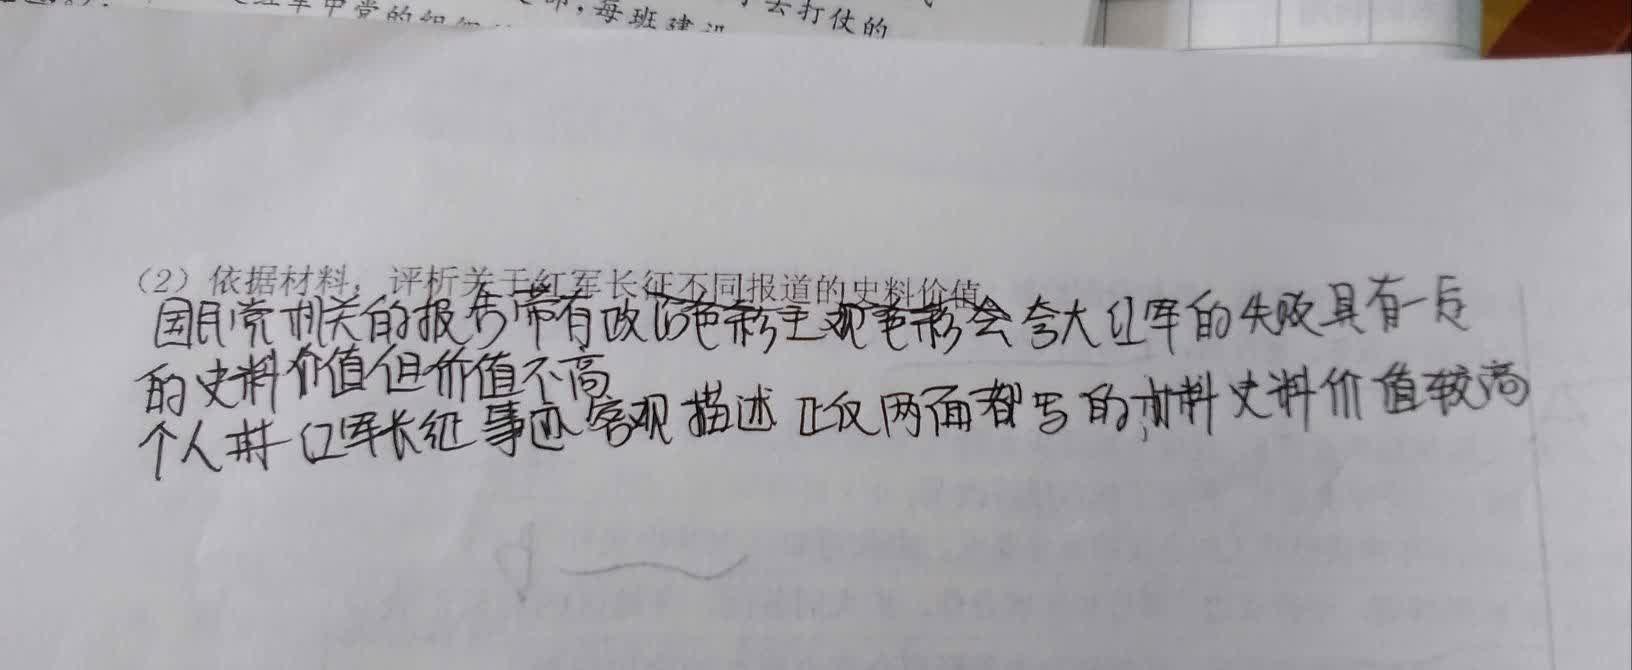 去打仗的
军中党的组织
,每班建设
(2)依据材料,评析关于红军长征不同报道的史料价值
国民党机关的报告带有政治色彩主观色彩会夸大红军的失败具有一定
的史料价值但价值不高
个人对红军长征事迹客观描述正反两面都写的材料史料价值较高